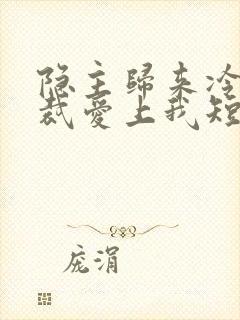 隐主歸来冷
裁愛上我短
庞涓